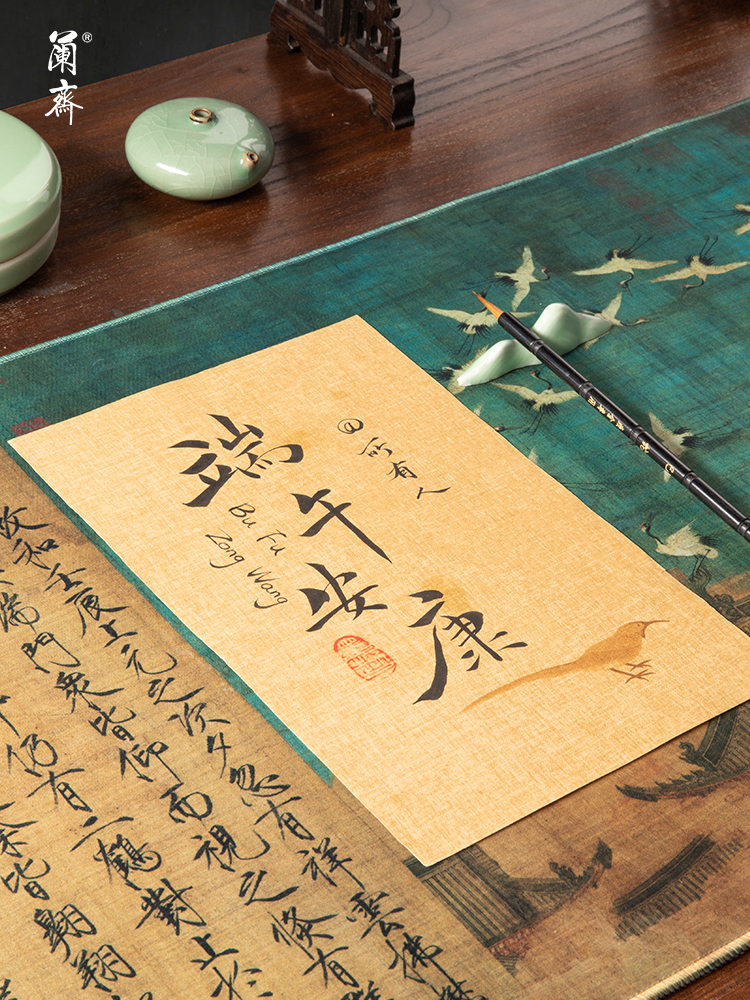 @所有人
端午安康
Bu Fu
Zong Wang
政和壬辰上元之次夕忽有祥雲拂
端門衆皆仰而視之倏有
仍有二鶴對止於
皆翱翔